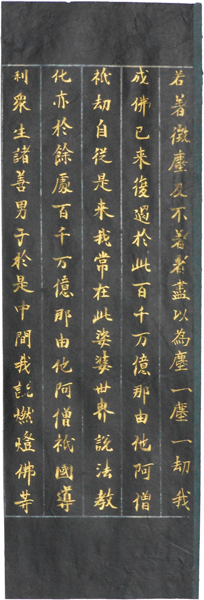 若著微塵及不著者盡以為塵一塵一劫我
成佛已来復過於此百千万億那由他阿僧
祇劫自従是来我常在此娑婆世界説法教
化亦於餘處百千万億那由他阿僧祇國導
利衆生諸善男子於是中間我説燃燈佛等